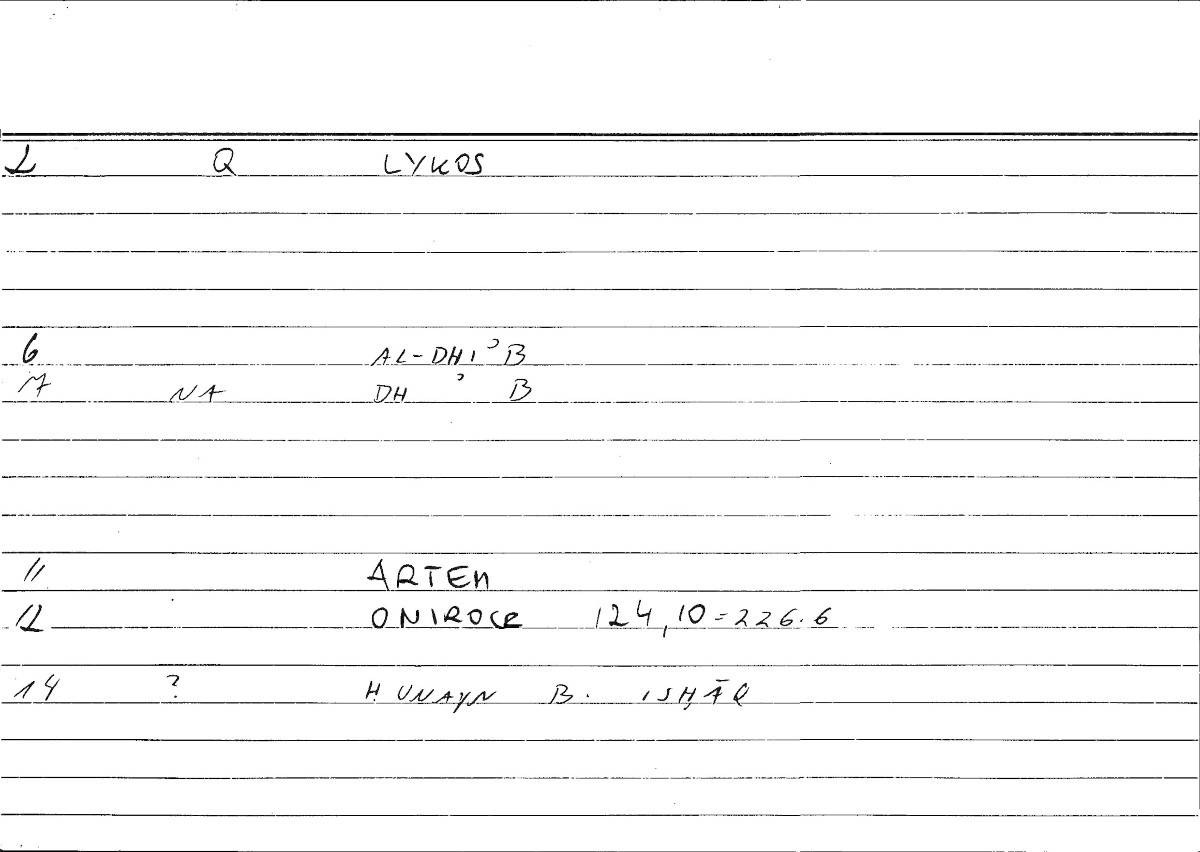 1 Q LYKOS
6 AL-DHIʾB
7 NA DH ʾ B
11 ARTEM
12 ONIROCR 124,10=226.6
14 ? ḤUNAYN B. ISḤĀQ